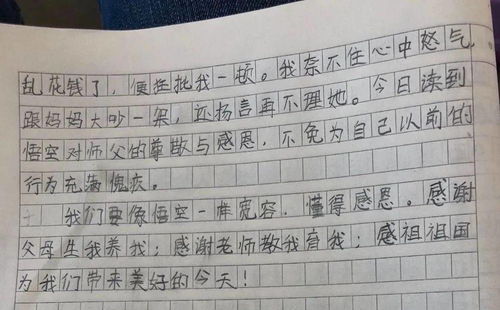 乱花钱了，便狂批我一顿。我奈不住心中怒气，
跟妈妈大吵一架，还扬言再不理她。今日读到
悟空对师父的尊敬与感恩，不免为自己以前的
行为充满愧疚。
我们要像悟空一样宽容，懂得感恩。感谢
父母生我养我；感谢老师教我育我；感祖祖国
为我们带来美好的今天！